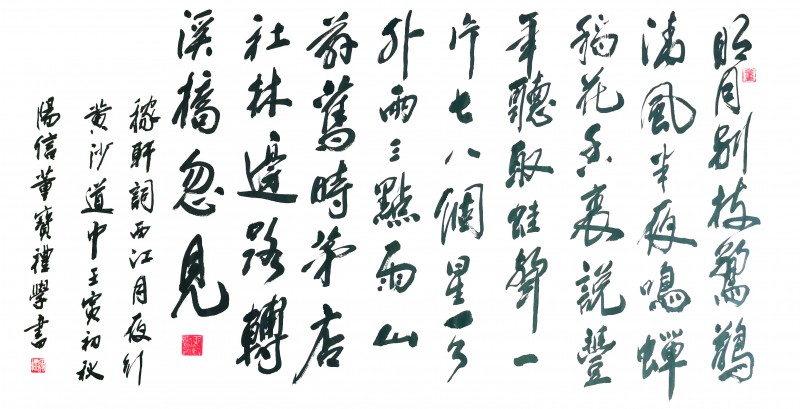 明月別枝驚鵲
清風半夜鳴蟬
稻花香裏說豐
年聽取蛙聲一
片七八個星天
外兩三點雨山
前舊時茅店
社林邊路轉
溪橋忽見
稼軒詞西江月夜行
黃沙道中壬寅初秋
陽信董寶禮學書